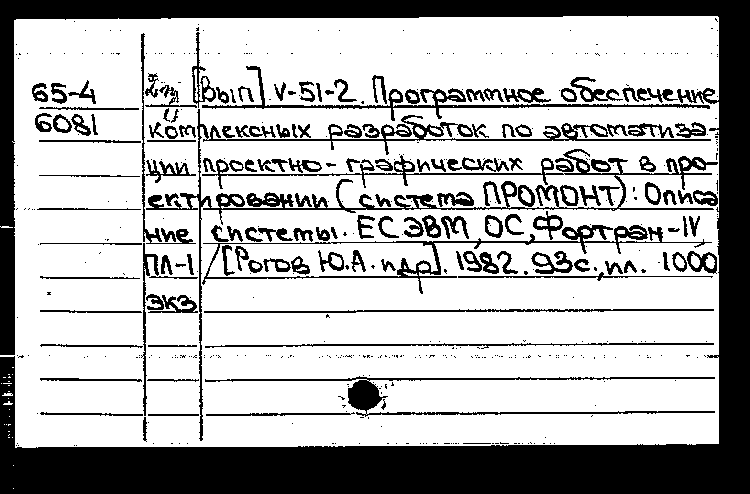 65-4 [Вып] V-51-2. Программное обеспечение
6081 комплексных разработок по автоматиза-
ции проектно-графических работ в про-
ектировании (система ПРОМОНТ): Описа
ние системы. ЕС ЭВМ, ОС, Фортран-IV,
ПЛ-1 / [Рогов Ю.А. и др]. 1982. 93с., ил. 1000
экз